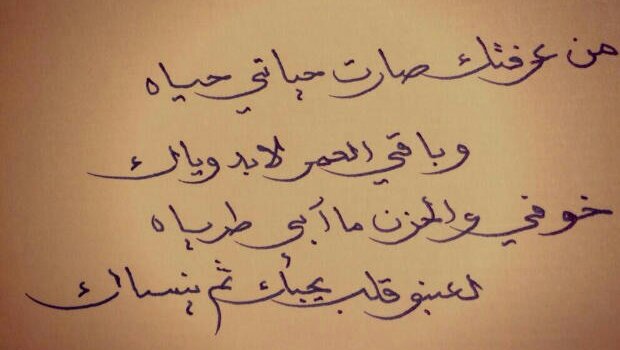 من عرفتك صارت حياتي حياه
وباقي العمر لابد وياك
خوفي والحزن ما أبي طرياه
لعنبو قلب يحبك ثم ينساك